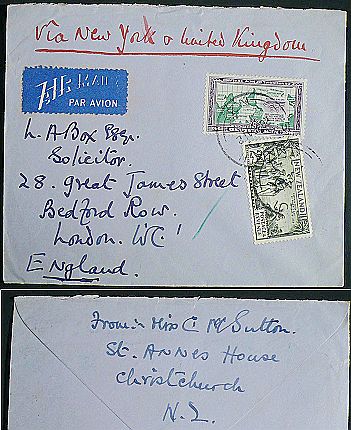 Via New York & United Kingdom.
AIR MAIL
PAR AVION
L. A Box Esqr.
Solicitor.
28. Great James Street
Bedford Row.
London. WC1
England.
NEW ZEALAND
From:- Miss C McSutton.
St. Annes House
Christchurch
N.Z.